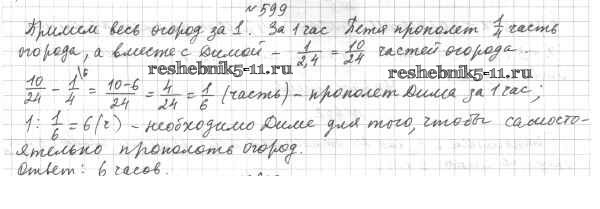 №599
Примем весь огород за 1. За 1 час Петя прополет 1/4 часть
огорода, а вместе с Димой – 1/2,4 = 10/24 частей огорода.
reshebnik5-11.ru reshebnik5-11.ru
10/24 - 1/4 \6 = 10-6/24 = 4/24 = 1/6 (часть) – прополет Дима за 1 час;
1 : 1/6 = 6 (ч) – необходимо Диме для того, чтобы самосто-
ятельно прополоть огород.
Ответ: 6 часов.